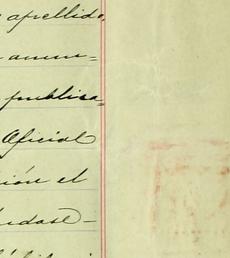 apellido,
anun=
publica-
Oficial
ión el
údase-